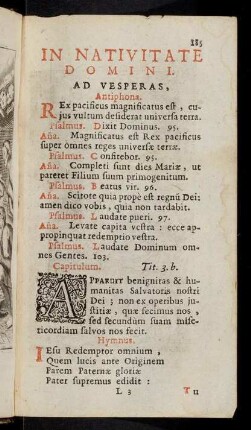 185
IN NATIVITATE
DOMINI.
AD VESPERAS,
Antiphona.
REx pacificus magnificatus est, cu-
jus vultum desiderat universa terra.
Psalmus. Dixit Dominus. 95.
Aña. Magnificatus est Rex pacificus
super omnes reges universæ terræ.
Psalmus. Confitebor. 95.
Aña. Completi sunt dies Mariæ, ut
pareret Filium suum primogenitum.
Psalmus. Beatus vir. 96.
Aña. Scitote quia propè est regnũ Dei:
amen dico vobis, quia non tardabit.
Psalmus. Laudate pueri. 97.
Aña. Levate capita vestra: ecce ap-
propinquat redemptio vestra.
Psalmus. Laudate Dominum om-
nes Gentes. 103.
Capitulum. Tit. 3. b.
APPARUIT benignitas & hu-
manitas Salvatoris nostri
Dei; non ex operibus ju-
stitiæ, quæ fecimus nos,
sed secundùm suam mise-
ricordiam salvos nos fecit.
Hymnus.
IEsu Redemptor omnium,
Quem lucis ante Originem
Parem Paternæ gloriæ
Pater supremus edidit:
L 3 Tu